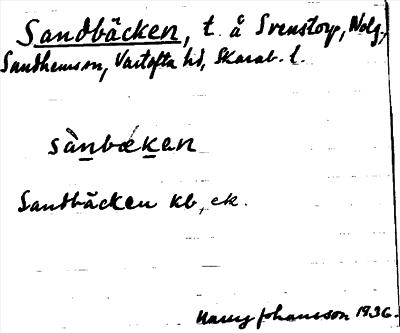 Sandbäcken, t. å Svenstorp, Wolg,
Sandhems sn, Vartofta hd, Skarab. l.
sànbǽkan
Sandbäcken kb, ek.
Harry Johansson 1936.